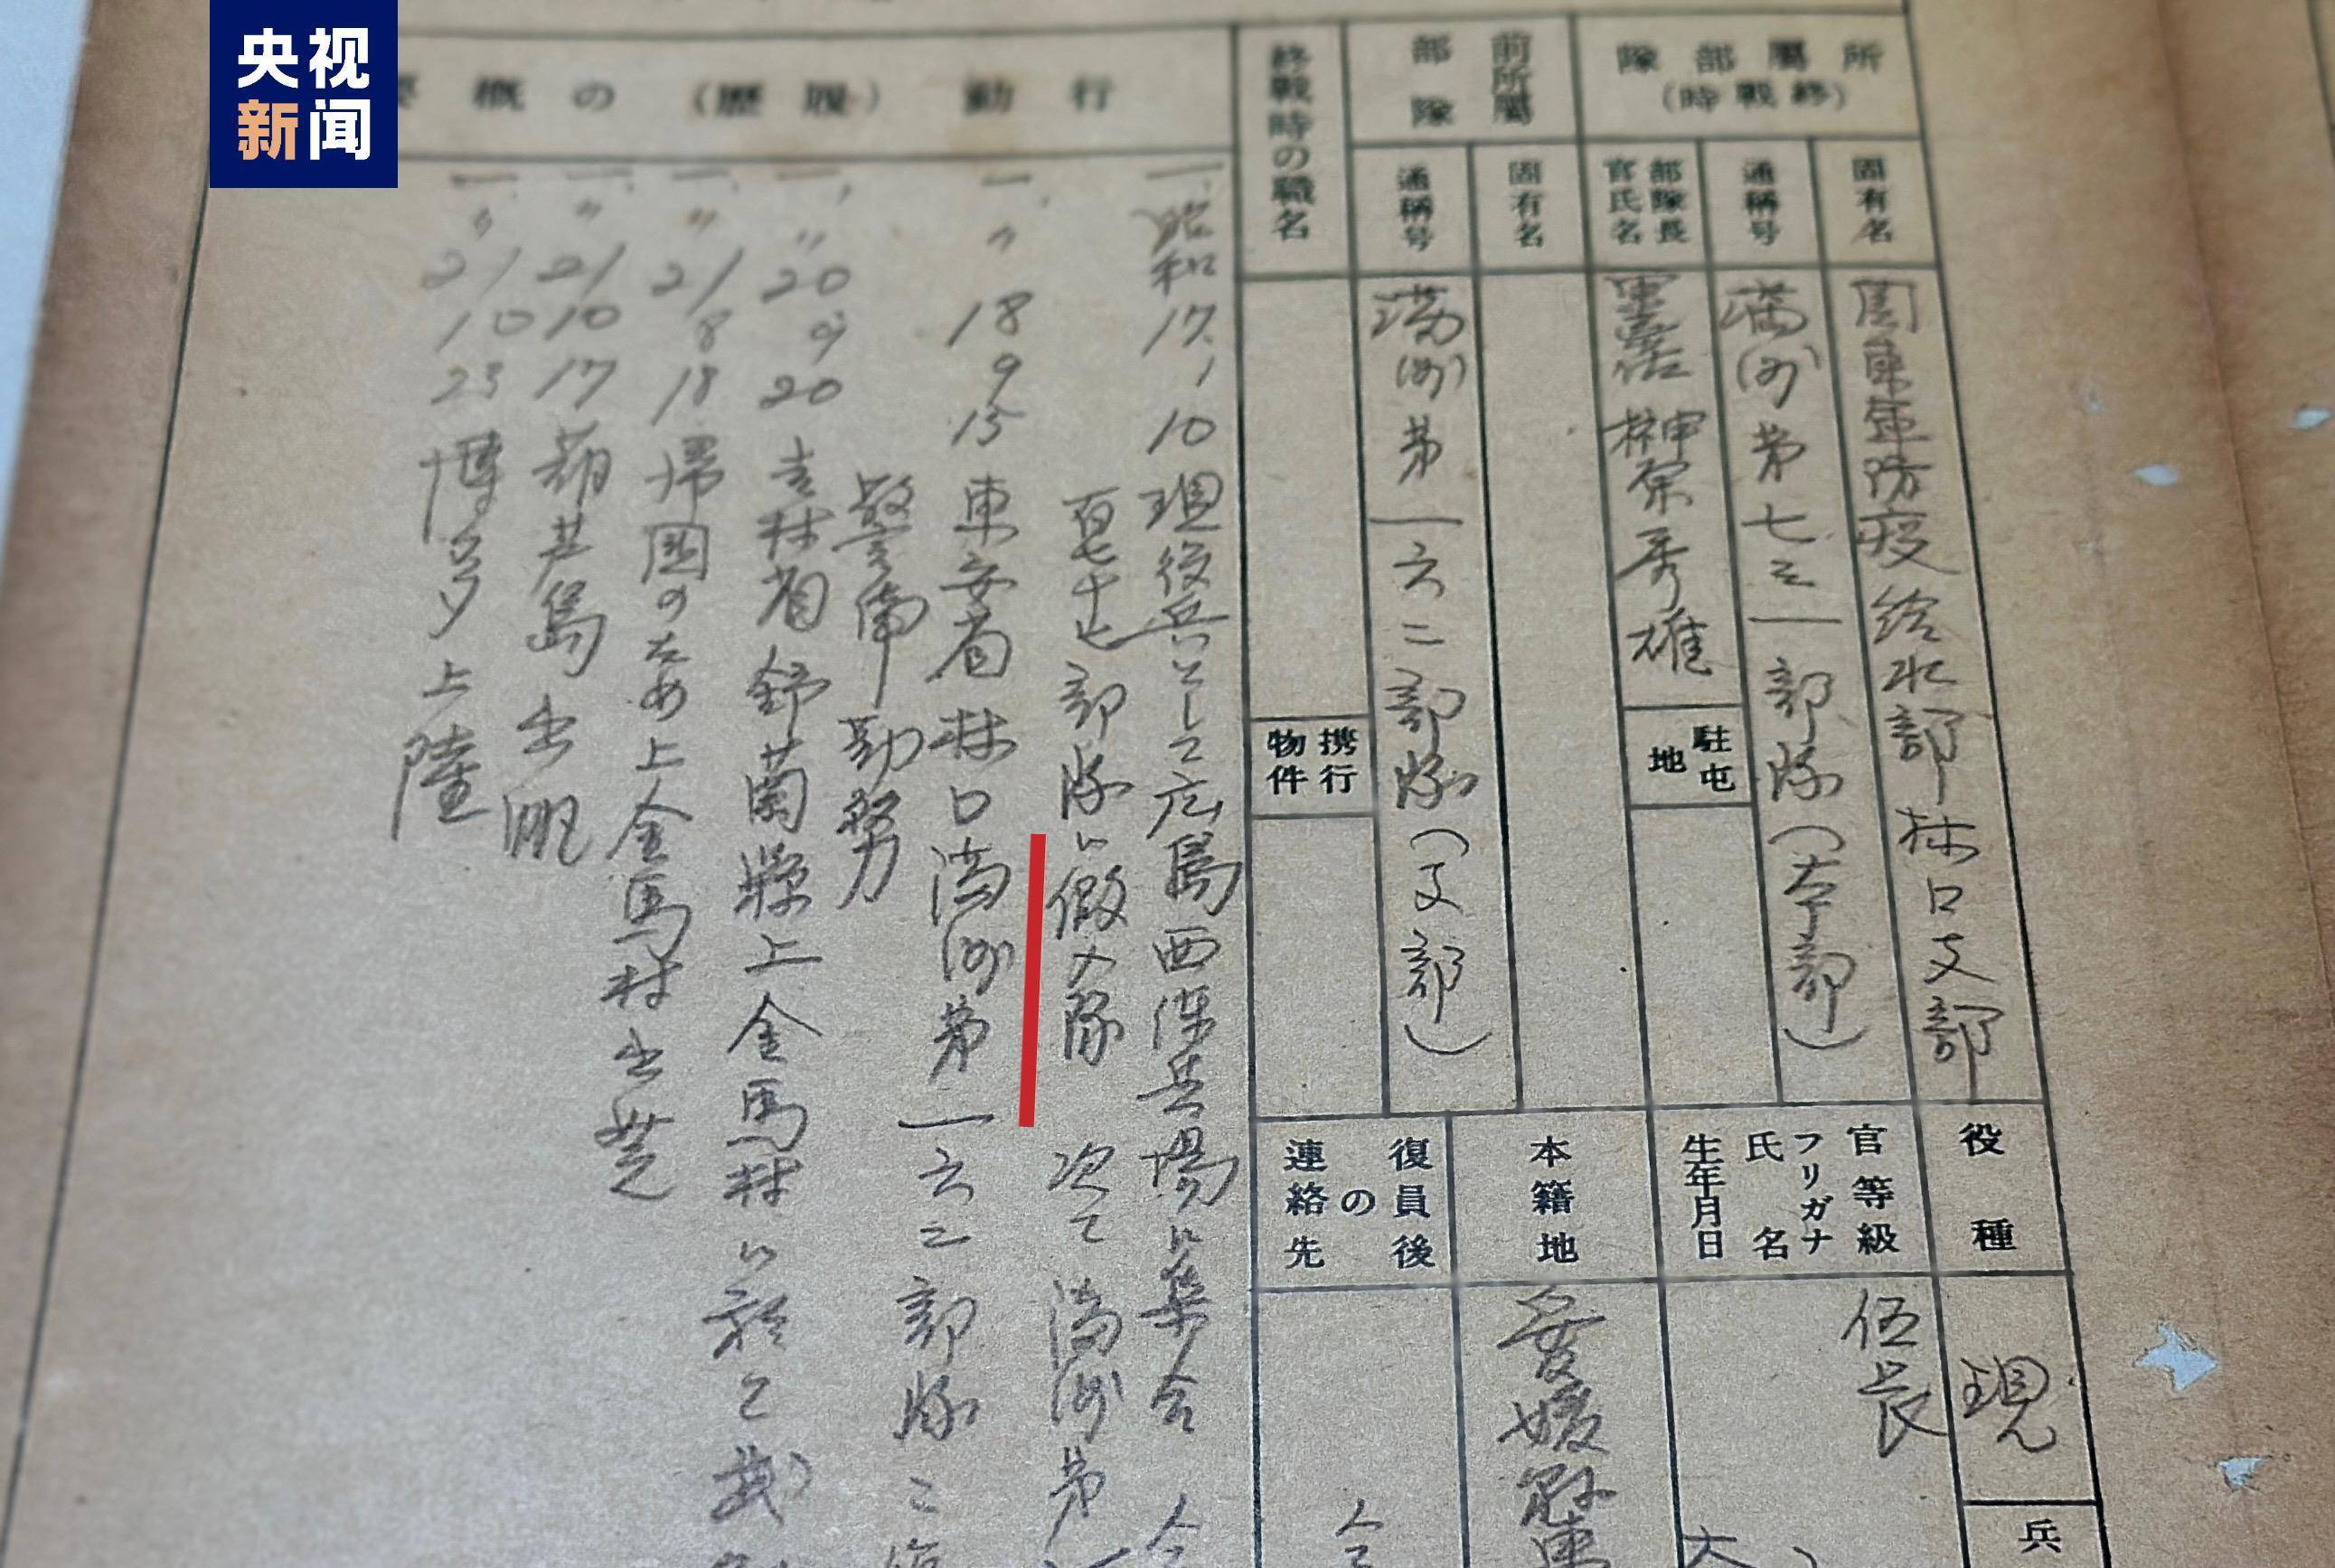 央视
新闻
所屬部隊
(終戰時)
固有名
関東軍防疫給水部林口支部
通稱号
満洲第七三一部隊(本部)
部隊長
官氏名
軍医 榊原秀雄
駐屯
地
前所屬
部隊
固有名
通稱号
満洲第一六二部隊(支部)
終戰時の職名
携行
物件
役種
現
兵
官等級
伍長
フリガナ
氏名
生年月日
本籍地
愛媛縣
復員後
の
連絡先
行動(履歴)の概要
一、昭和17、1、10 現役兵として広島西練兵場に集合
部隊に 入隊 次て満洲第
一、〃 18 9 15 東安省林口満洲第一六二部隊ニ
警備勤務
一、〃 20 9 20 吉林省舒蘭縣上金馬村に於て武
一、〃 21 8 18 帰国のため上金馬村出発
一、〃 21 10 17 葫芦島出帆
一、〃 21 10 23 博多上陸